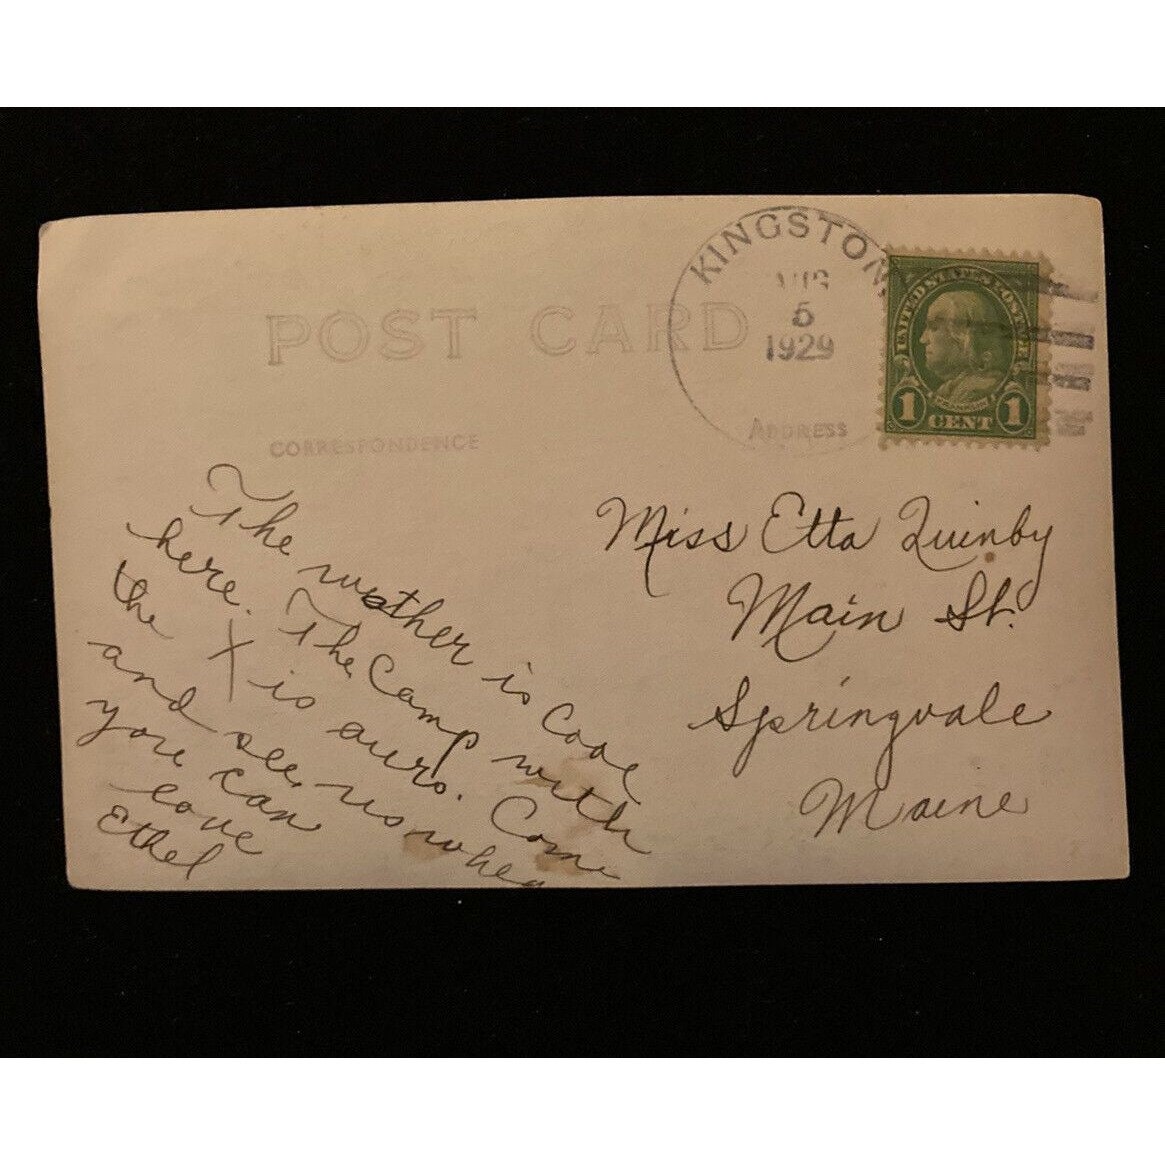 POST CARD
CORRESPONDENCE
ADDRESS
KINGSTON,
AUG
5
1929
UNITED STATES POSTAGE
FRANKLIN
1 CENT 1
The weather is Cool
here. The Camp with
the X is ours. Come
and see us when
you can
love
Ethel
Miss Etta Quinby
Main St.
Springvale
Maine